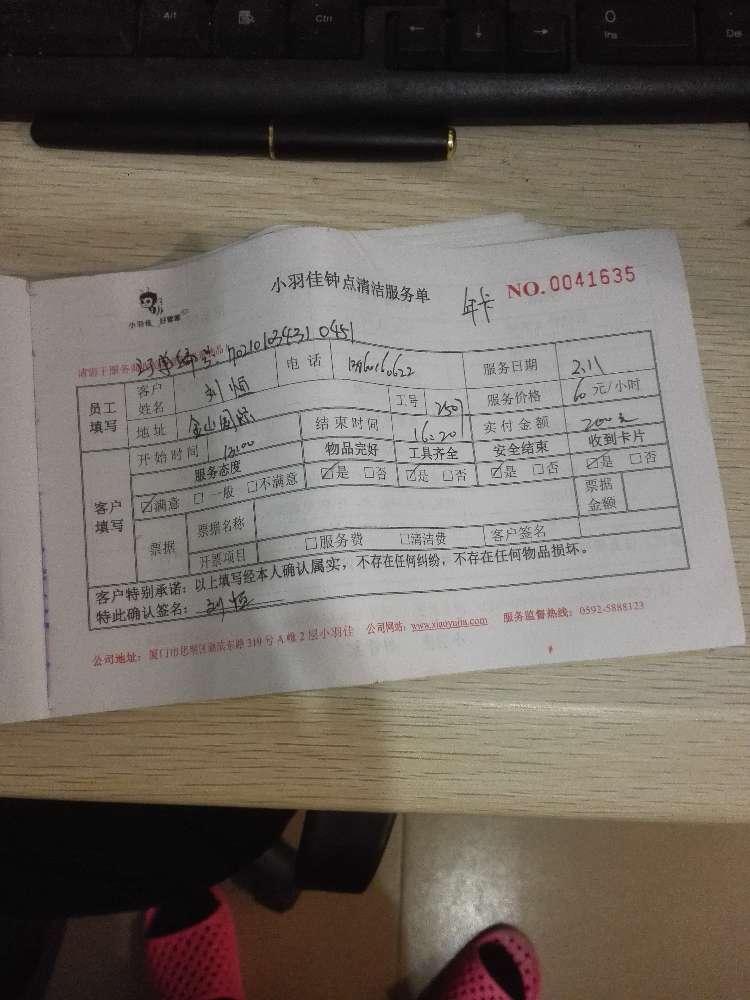 Alt
Ctrl
0
Ins
Del
小羽佳钟点清洁服务单
年卡
NO.0041635
小羽佳 好管家
订单编号:
员工填写
客户姓名
刘恒
电话
服务日期
2.11
地址
工号
服务价格
60元/小时
客户填写
开始时间
结束时间
16:20
实付金额
服务态度
物品完好
工具齐全
安全结束
收到卡片
☑满意 □一般 □不满意
☑是 □否
☑是 □否
☑是 □否
☑是 □否
票据
票据名称
票据金额
开票项目
□服务费
□清洁费
客户签名
客户特别承诺:以上填写经本人确认属实,不存在任何纠纷,不存在任何物品损坏。
特此确认签名:刘恒
公司地址:厦门市思明区嘉滨东路319号A幢2层小羽佳 公司网站:www.xiaoyujia.com 服务监督热线:0592-5888123